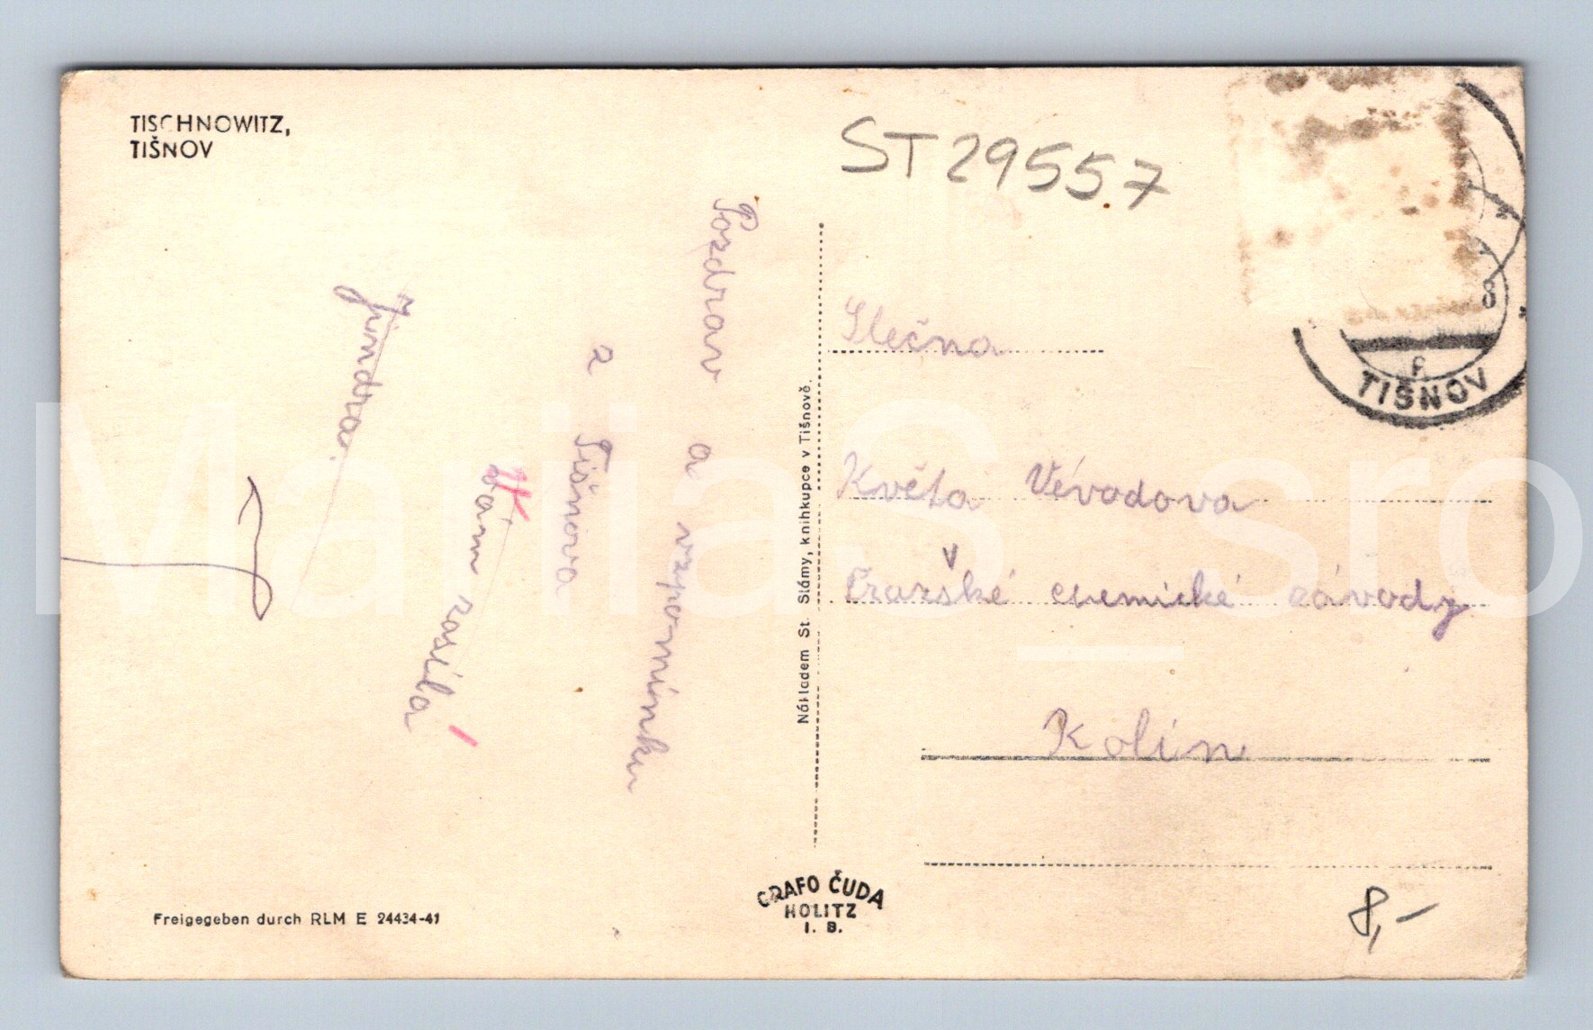 TISCHNOWITZ,
TIŠNOV
ST 29557
TIŠNOV
Pozdrav a vzpomínku
z Tišnova
Vám zasílá
Jindra.
Slečna
Květa Vévodova
Pražské chemické závody
v
Kolín
Nákladem St. Slámy, knihkupce v Tišnově.
GRAFO ČUDA
HOLITZ
I. B.
Freigegeben durch RLM E 24434-41
8,-
MarijaS_sro